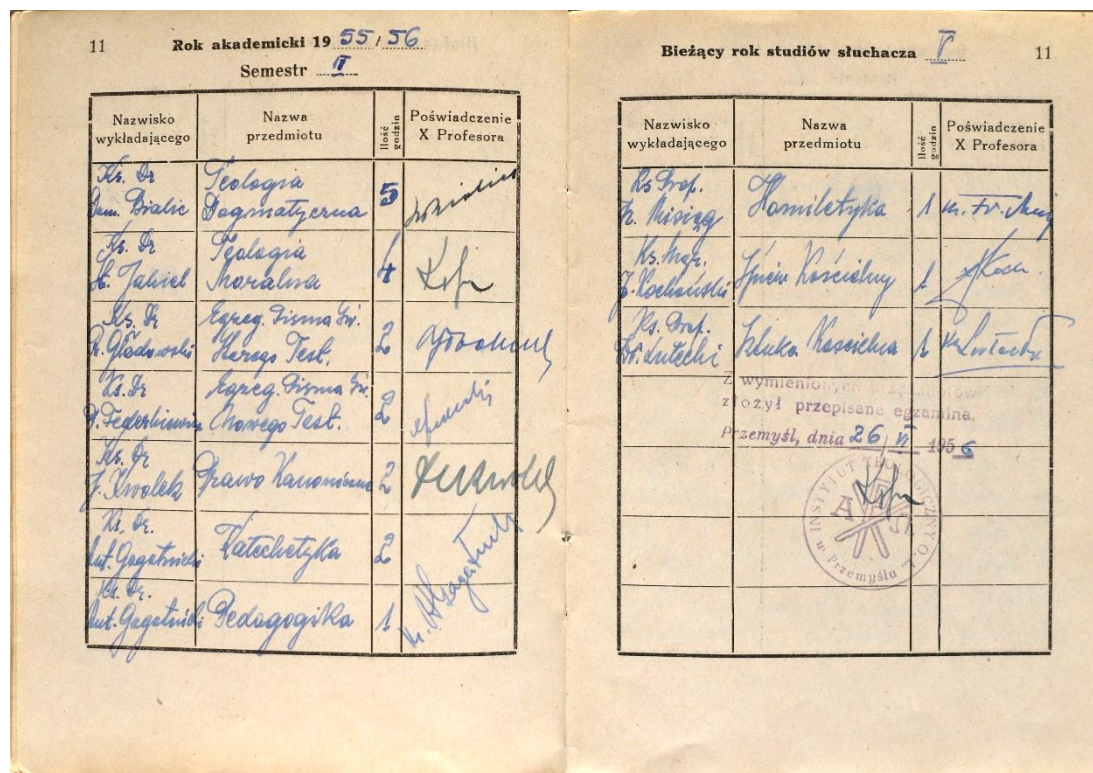 11
Rok akademicki 1955/56
Semestr II
Nazwisko wykładającego
Nazwa przedmiotu
Ilość godzin
Poświadczenie X Profesora
Ks. Dr Teologia
Dam. Bialic Dogmatyczna 5
Ks. Dr Teologia
H. Jakiel Moralna 4
Ks. Dr Egzeg. Pisma Św.
Głodowski Starego Test. 2
Ks. Dr Egzeg. Pisma Św.
P. Federkiewicz Nowego Test. 2
Ks. Dr
J. Kwolek Prawo Kanoniczne 2
Ks. Dr.
Ant. Gagatnicki Katechetyka 2
Ks. Dr.
Ant. Gagatnicki Pedagogika 1
Bieżący rok studiów słuchacza V
11
Nazwisko wykładającego
Nazwa przedmiotu
Ilość godzin
Poświadczenie X Profesora
Ks. Prof.
Fr. Misiąg Homiletyka 1
Ks. Mgr.
J. Kochański Śpiew Kościelny 1
Ks. Prof.
Lutecki Sztuka Kościelna 1
Z wymienionych przedmiotów
złożył przepisane egzamina.
Przemyśl, dnia 26/VI 1956
INSTYTUT TEOLOGICZNY O. Ł.
w Przemyślu